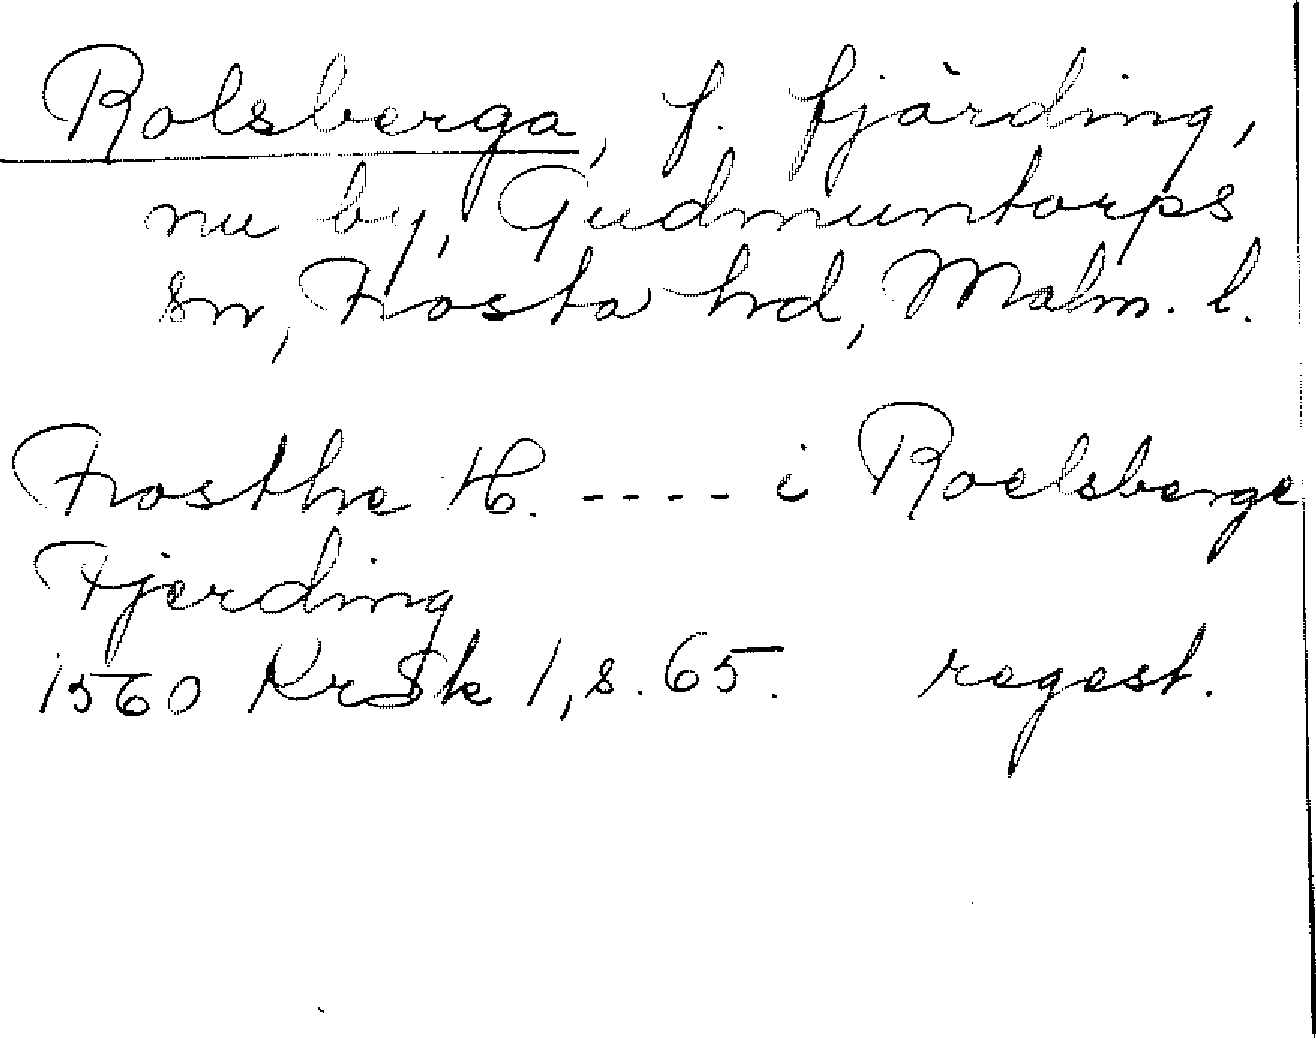 Rolsberga, f. fjärding,
nu by, Gudmuntorps
sn, Frosta hd, Malm. l.
Frosthe H. ---- i Roelsberge
Fjerding
1560 KrSk 1, s. 65. regest.